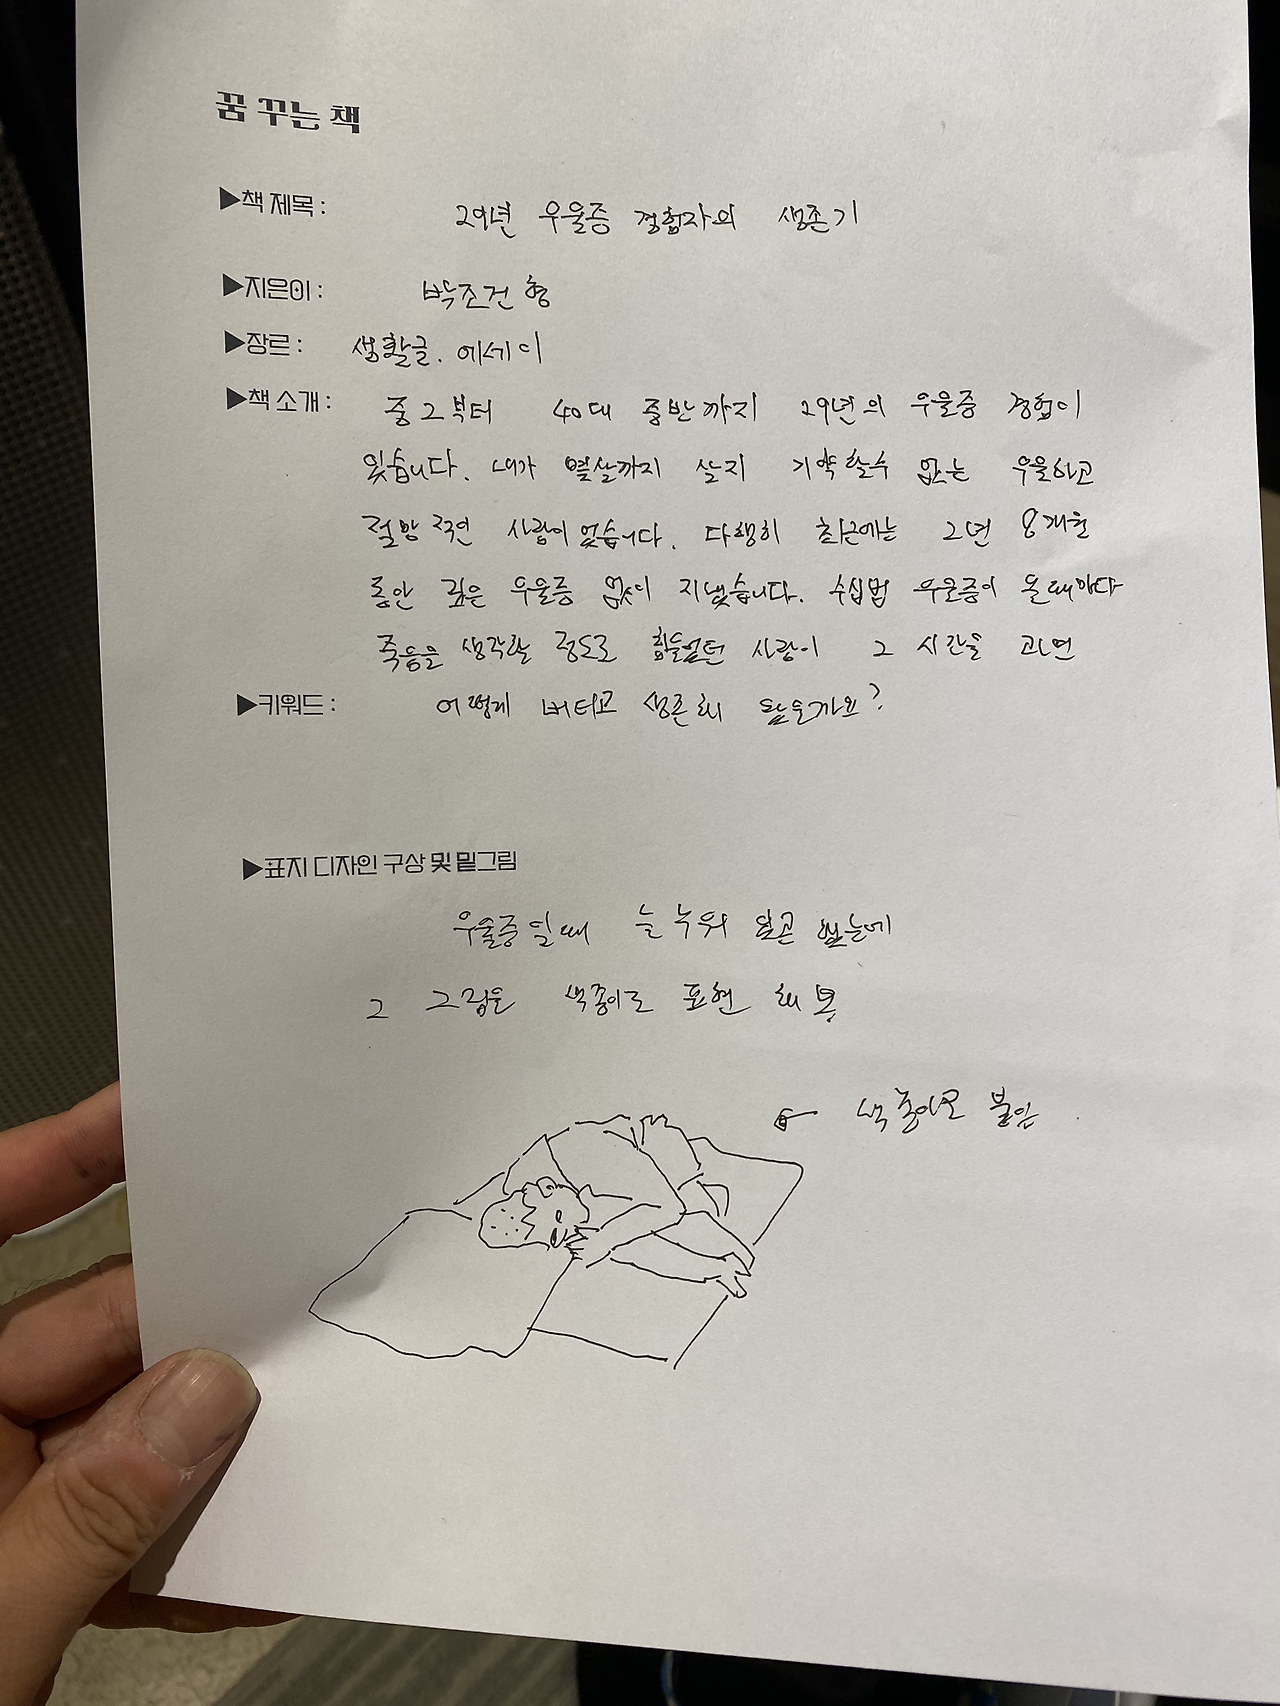 꿈 꾸는 책
▶책 제목 : 29년 우울증 경험자의 생존기
▶지은이 : 박조건형
▶장르 : 생활글. 에세이
▶책 소개 : 중2부터 40대 중반까지 29년의 우울증 경험이
있습니다. 내가 몇살까지 살지 기약할수 없는 우울하고
절망적인 사람이었습니다. 다행히 최근에는 2년 8개월
동안 깊은 우울증 없이 지냈습니다. 수십번 우울증이 올때마다
죽음을 생각할 정도로 힘들었던 사람이 그 시간을 과연
▶키워드 : 어떻게 버티고 생존해 왔을까요?
▶표지 디자인 구상 및 밑그림
우울증일때 늘 누워 있곤 했는데
그 그림을 색종이로 표현 해 봄
색종이로 붙임